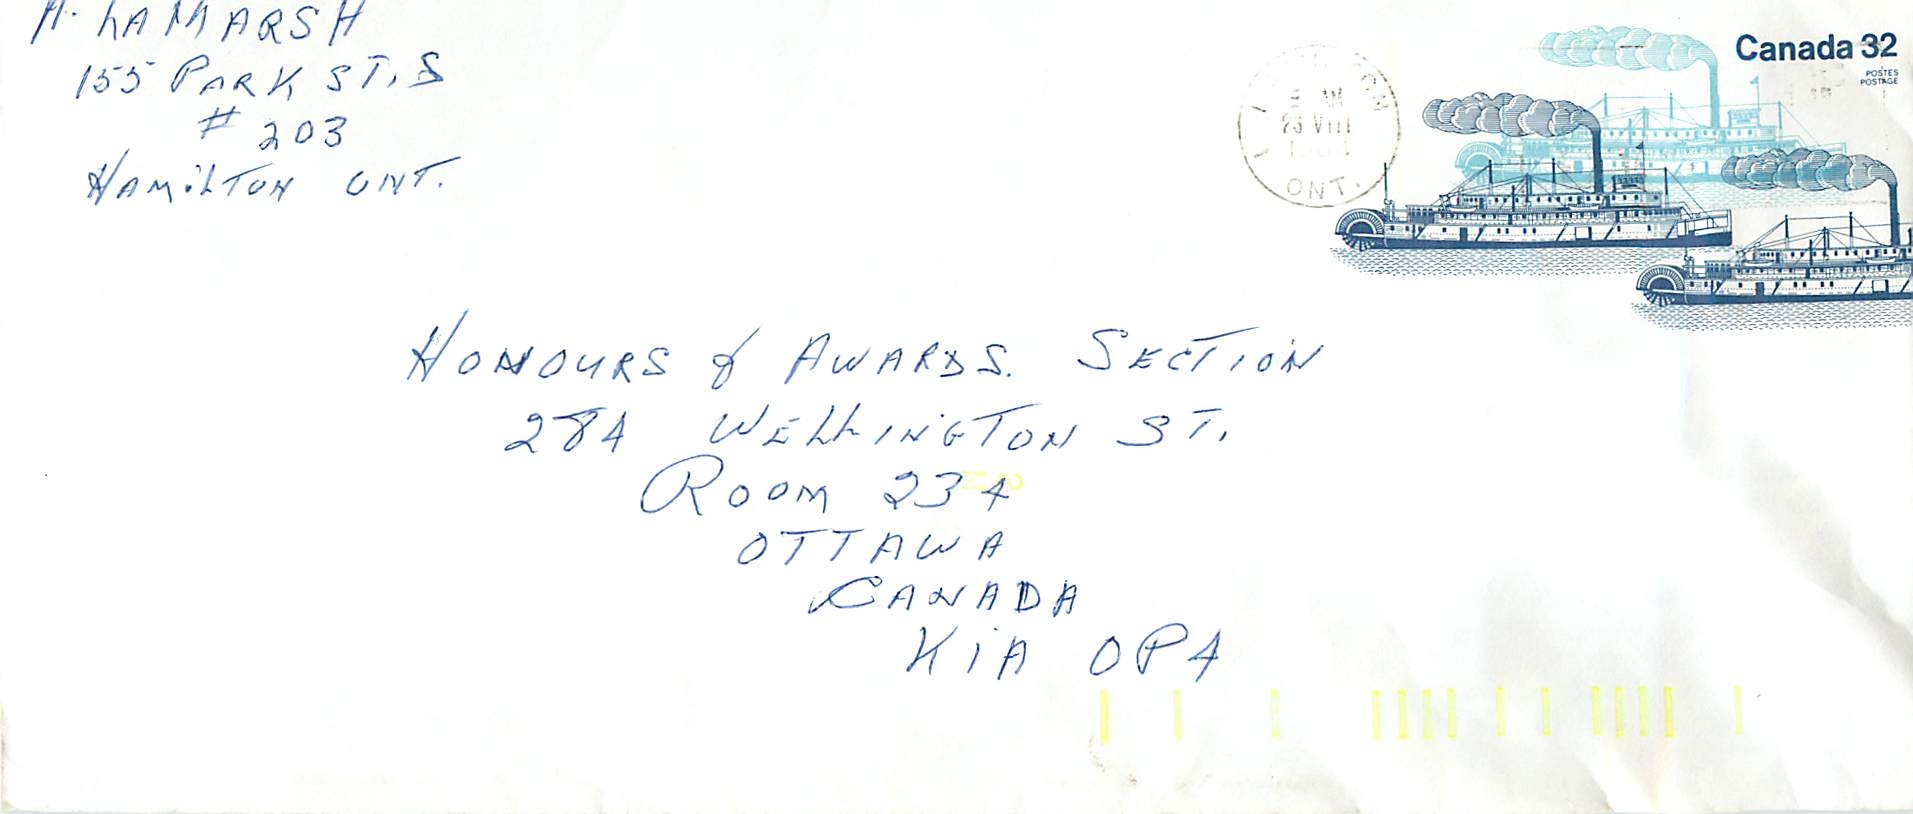 H. LAMARSH
155 PARK ST, S
# 203
HAMILTON ONT.
Canada 32
POSTES
POSTAGE
AM
VIII
ONT.
HONOURS & AWARDS. SECTION
284 WELLINGTON ST.
ROOM 234
OTTAWA
CANADA
KIA OP4